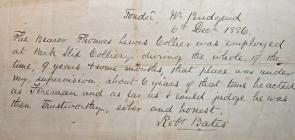 Tondu, Nr Bridgend
6th Decr 1886.
The Bearer Thomas Lewis Collier was employed
at Park Slip Colliery during the whole of the
time, 9 years & some months, that place was under
my supervision, about 6 years of that time he acted
as Fireman and as far as I could judge he was
then Trustworthy, sober and honest
Robt Bates